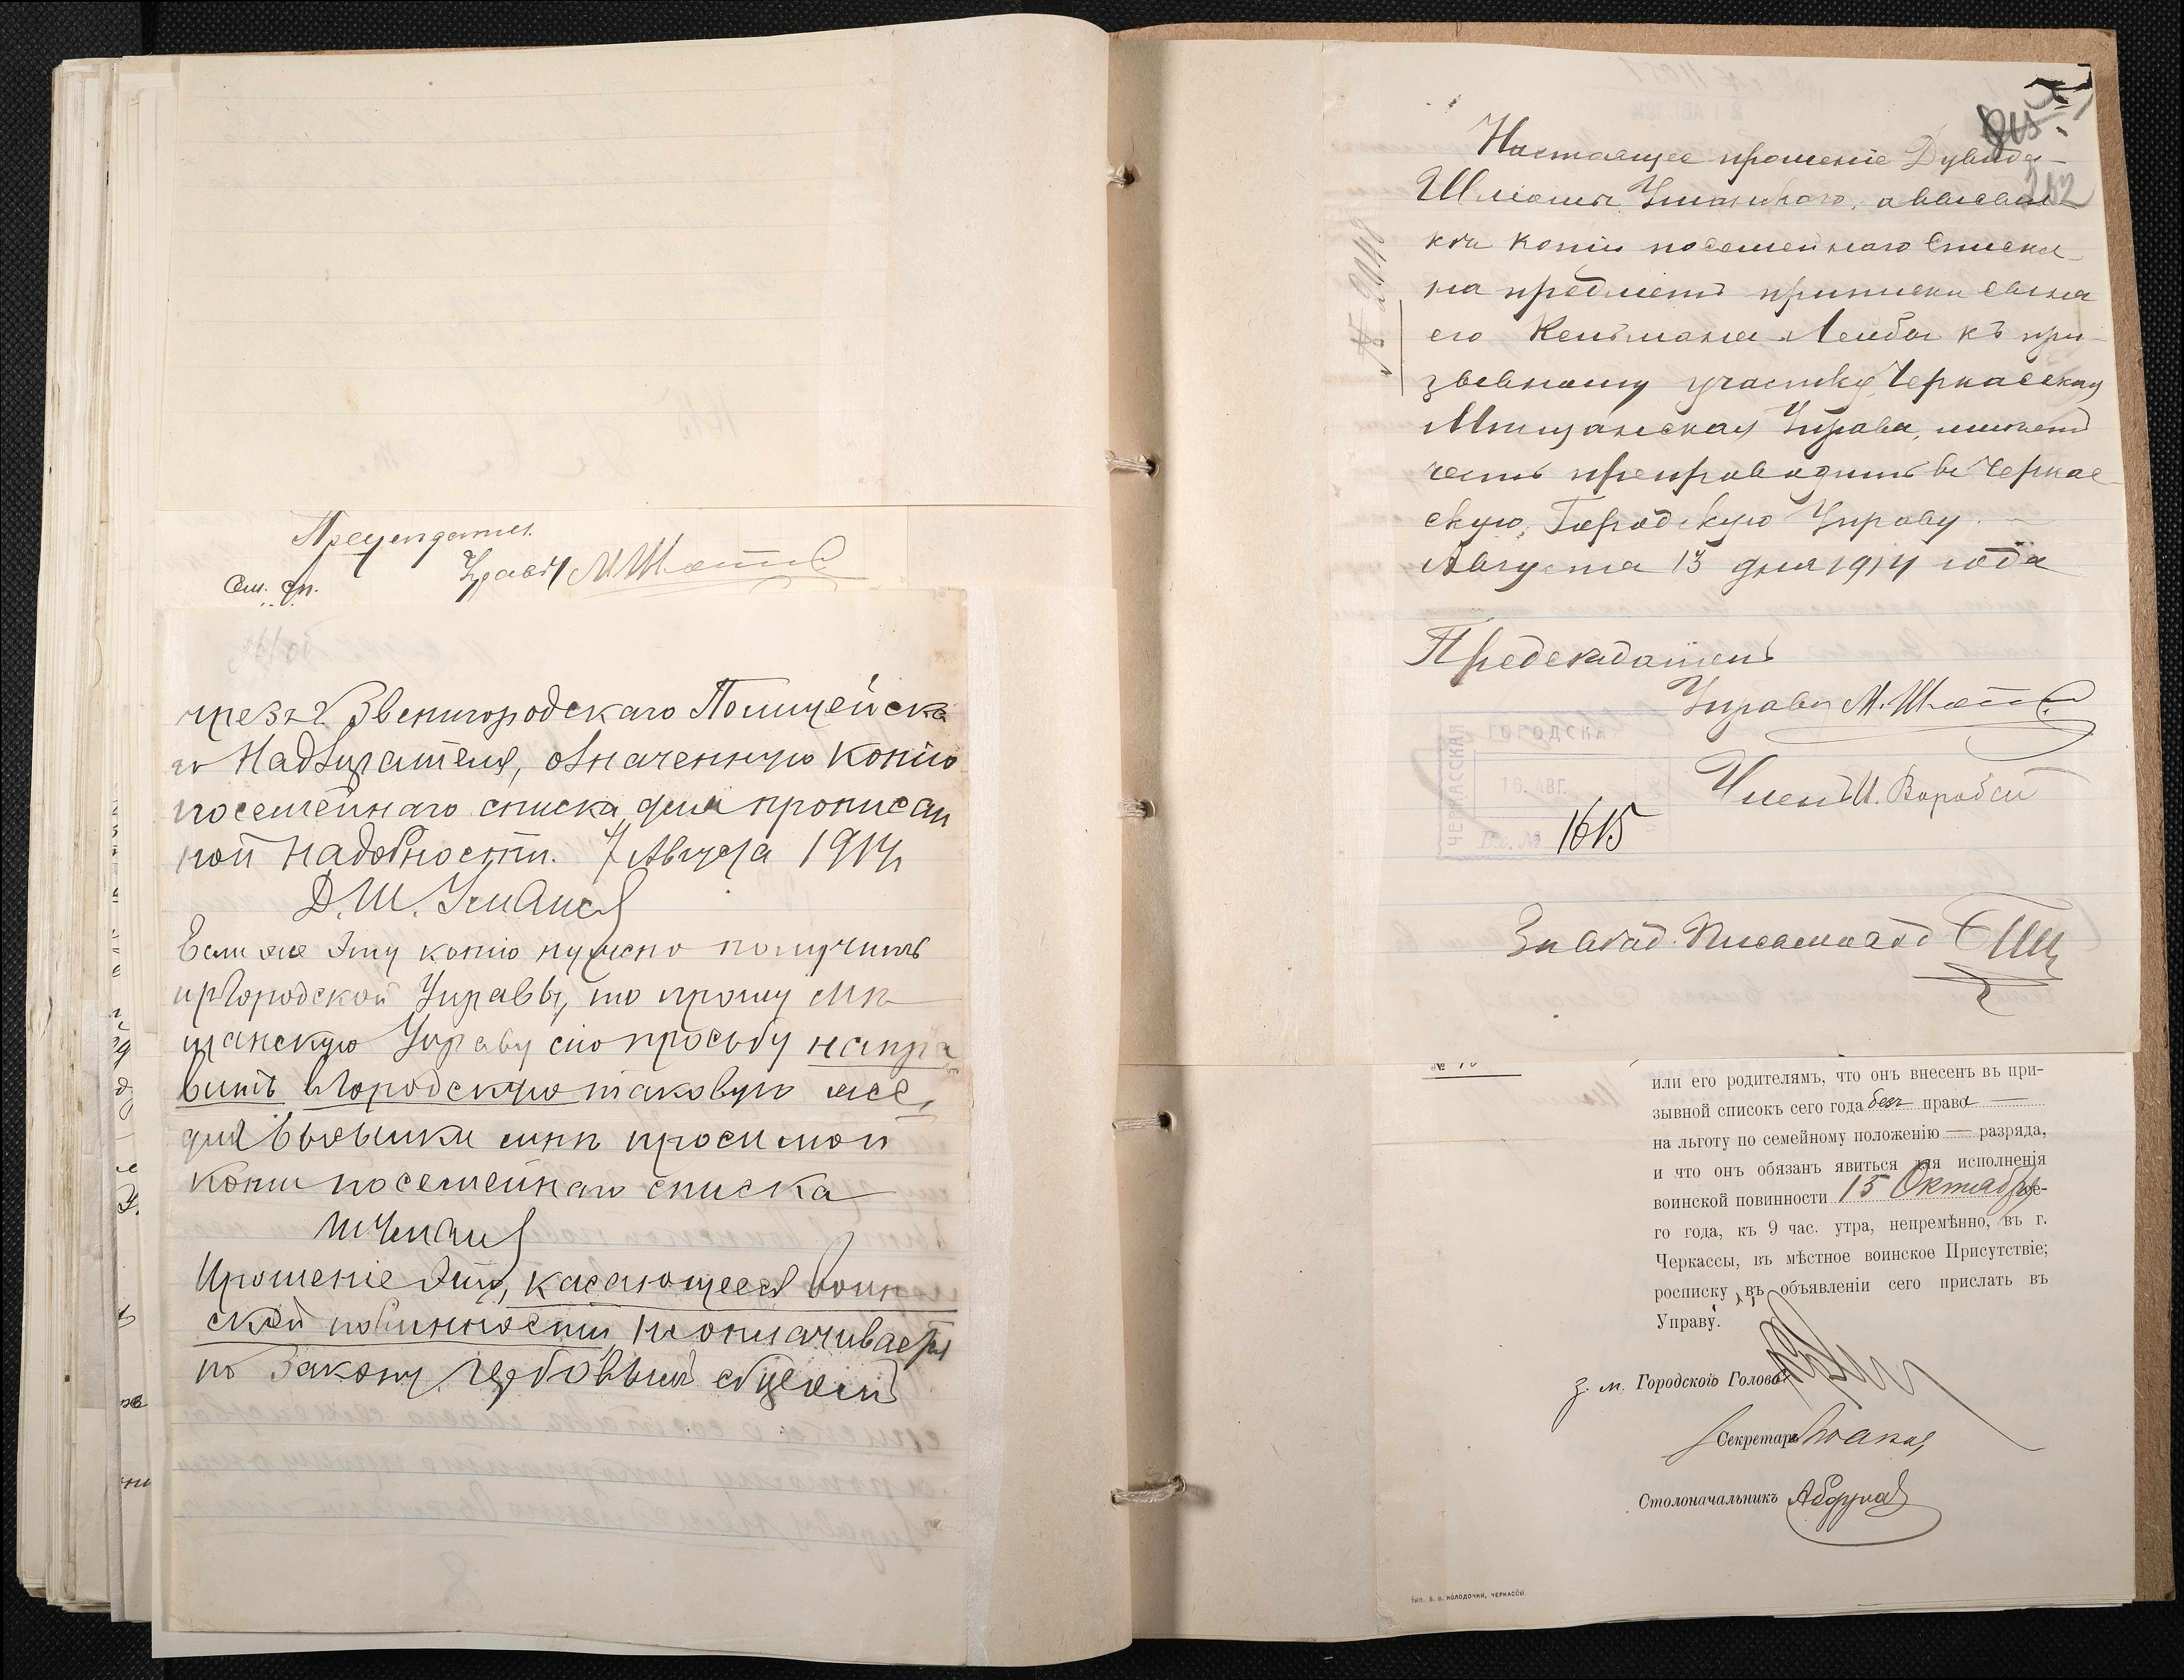 Управы М. Шо
См. сп.
чрезъ г. Звенигородскаго Полицейска
го Надзирателя, означенную копію
посемейнаго списка для прописан
ной надобности. 7 Августа 1914
Д. Ш. Уманск
Если же эту копію нужно получить
Городской Управы, то прошу Мѣ
щанскую Управу сію просьбу напра
вить въ Городскую таковую же,
для высылки мнѣ просимой
копіи посемейнаго списка
Ш Уманс
Прошеніе это, касающееся Воин
ской повинности, не оплачивается
по закону гербовымъ сборомъ
282
Настоящее прошеніе Дувида-
Шлиомы Уманскаго, о высыл
кѣ копіи посемейнаго списка
на предметъ приписки сына
его Кельмана Лейбы къ при-
зывному участку, Черкасская
Мѣщанская Управа, имѣетъ
честь препроводить въ Черкас
скую Городскую Управу.
Августа 13 дня 1914 года
№ 2048
Предсѣдатель
Управы М. Шо
Членъ И. Воробей
ЧЕРКАССКАЯ
ГОРОДСКА
16. АВГ.
Вх. № 1615
Завѣд. Письмовод
№
или его родителямъ, что онъ внесенъ въ при-
зывной списокъ сего года безъ права —
на льготу по семейному положенію — разряда,
и что онъ обязанъ явиться для исполненія
воинской повинности 15 Октября се-
го года, къ 9 час. утра, непремѣнно, въ г.
Черкассы, въ мѣстное воинское Присутствіе;
росписку въ объявленіи сего прислать въ
Управу.
з. м. Городского Головы
Секретарь
Столоначальникъ
ТИП. В. В. КОЛОДОЧКИ, ЧЕРКАССЫ